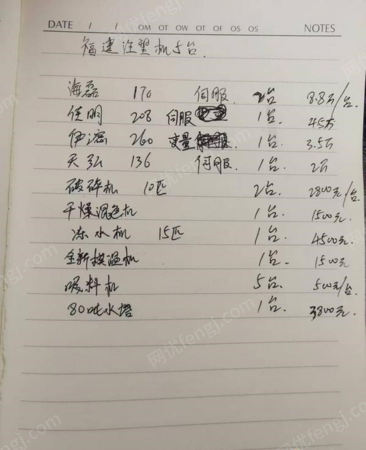 DATE / / OM OT OW OT OF OS OS NOTES
福建注塑机5台
海磊 170 伺服 2台 8.8万/台
佳明 208 伺服 1台 4.5万
伊之密 260 变量 1台. 3.5万
天弘 136 伺服 1台. 2万
破碎机 10匹 2台 2800元/台
干燥混色机 1台 1500元
冻水机 15匹 1台 4500元
全新模温机 1台. 1500元
吸料机 5台 500元/台
80吨水塔 1台. 3800元.